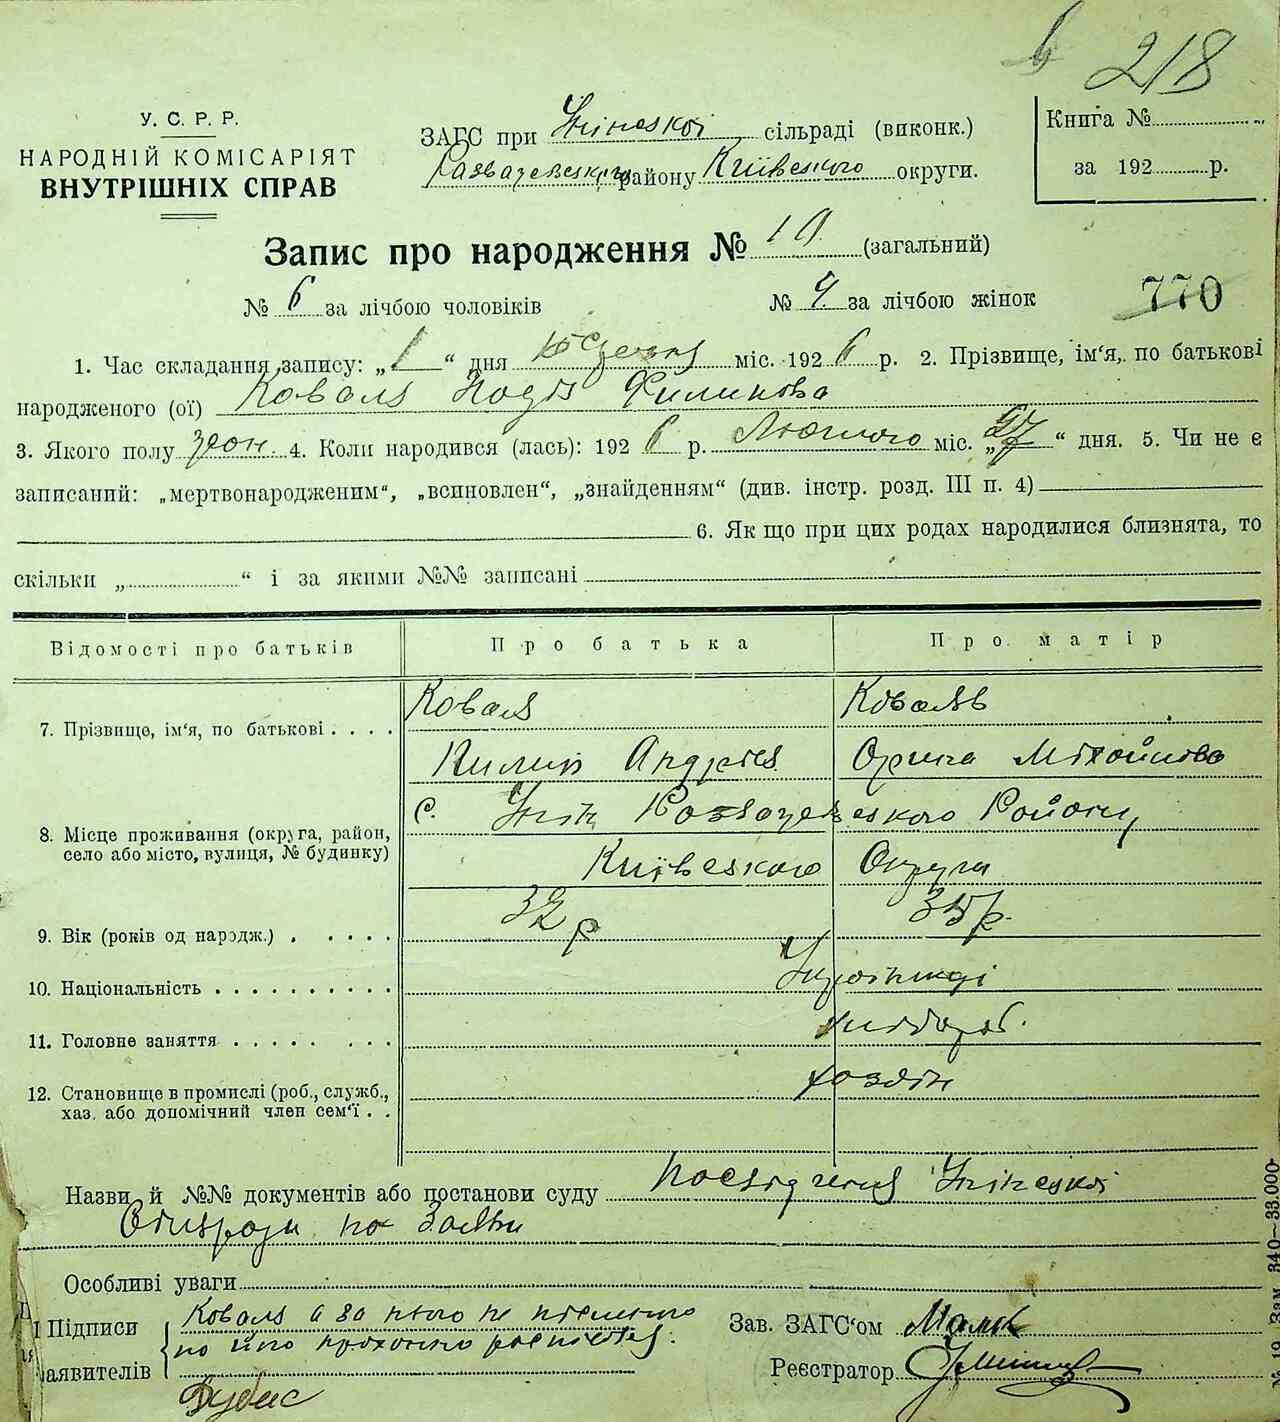 218
У. С. Р. Р.
НАРОДНІЙ КОМІСАРІЯТ
ВНУТРІШНІХ СПРАВ
ЗАГС при сільраді (виконк.)
району Київеского округи.
Книга №
за 192 р.
Запис про народження № 10 (загальний)
№ 6 за лічбою чоловіків
№ 4 за лічбою жінок
770
1. Час складання запису: „1“ дня міс. 1926 р. 2. Прізвище, ім‘я, по батькові
народженого (ої) Коваль Надія Филипова
3. Якого полу жон. 4. Коли народився (лась): 1926 р. Лютого міс. „27“ дня. 5. Чи не є
записаний: „мертвонародженим“, „всиновлен“, „знайденням“ (див. інстр. розд. III п. 4)
6. Як що при цих родах народилися близнята, то
скільки „ “ і за якими №№ записані
Відомості про батьків Про батька Про матір
7. Прізвище, ім‘я, по батькові Коваль Коваль
Пилип Андрієв Орина Міхайлова
8. Місце проживання (округа, район, село або місто, вулиця, № будинку) с. Района
Київеского Округи
9. Вік (років од народж.) 32 р 35 р.
10. Національність Українці
11. Головне заняття хлібороб.
12. Становище в промислі (роб., служб., хаз. або допомічний член сем‘ї хозяїн
Назви й №№ документів або постанови суду
Сільради по Заяви
Особливі уваги
Підписи заявителів Коваль а за його не
по його
Дубас
Зав. ЗАГС‘ом
Реєстратор
№ 19 Зам 340—33.000